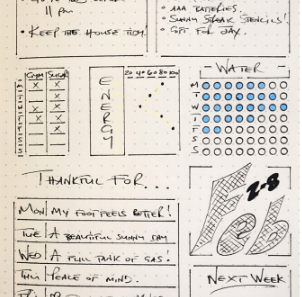 11 PM
• KEEP THE HOUSE TIDY.
• AAA BATTERIES.
• SUNNY STENCILS!
• GIFT FOR JAY.
GYM SUGAR
ENERGY
20 40 60 80 100
WATER
M
T
W
T
F
S
S
THANKFUL FOR...
MON MY FOOT FEELS BETTER!
TUE A BEAUTIFUL SUNNY DAY
WED A FULL TANK OF GAS.
THU PEACE OF MIND.
2-8
Feb
NEXT WEEK